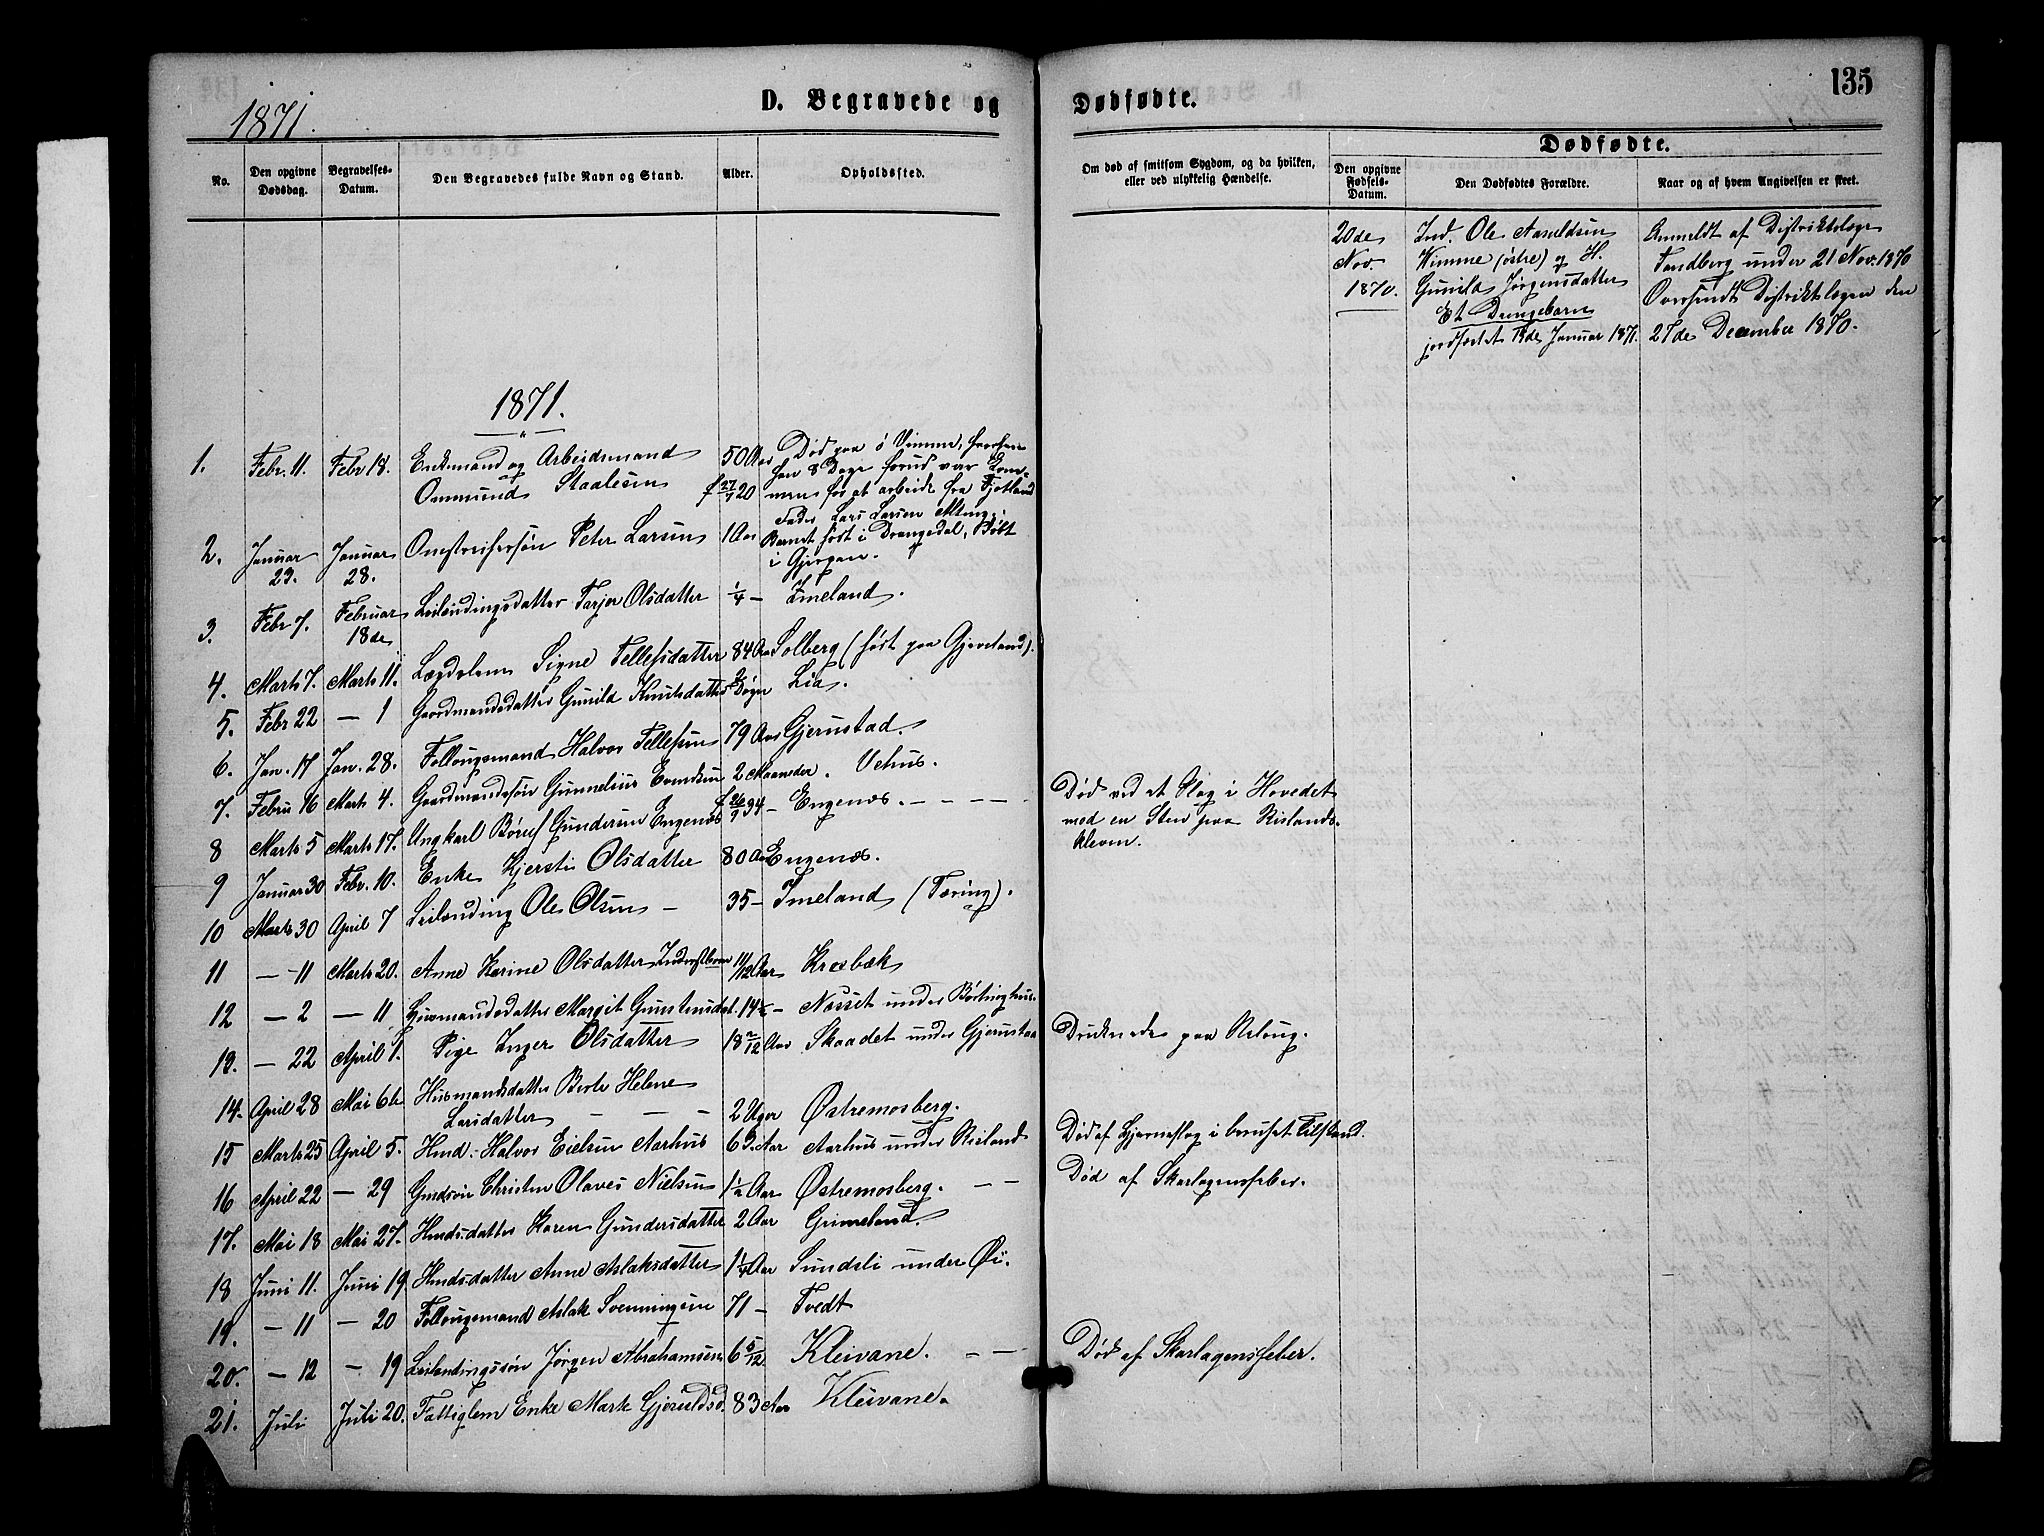 135
1871.
D. Begravede og Dødfødte.
No.
Den opgivne Dødsdag.
Begravelses-Datum.
Den Begravedes fulde Navn og Stand.
Alder.
Opholdssted.
Om død af smitsom Sygdom, og da hvilken, eller ved ulykkelig Hændelse.
Dødfødte.
Den opgivne Fødsels-Datum.
Den Dødfødtes Forældre.
Naar og af hvem Angivelsen er skeet.
20de Ind. Ole Asmeldsen Anmeldt af Distriktslæge
Nov. Vimme (østre) og H. Tandberg under 21 Nov. 1870
1870. Gunild Jørgensdatter Oversendt Distriktslægen den
Et Drengebarn 27de December 1870.
jordfæstet Januar 1871.
1871.
1. Febr. 11. Febr 18. Enkemand og Arbeidsmand 50 Aar Død paa ø Vimme, hvorhen
han 8 Dage forud var kom-
Ommund Staalesen f 27/7 20 men for at arbeide fra Fjotland
Fader Lars Larsen
2. Januar 23. Januar 28. Omstreifersøn Peter Larsen 1 Aar Barnet født i Drangedal, Døbt
i Gjerpen.
3. Febr 7. Februar 18de Leilendingsdatter Tarjer Olsdatter 1/4 – Imeland.
4. Marts 7. Marts 11. Lægdslem Signe Tellefsdatter 84 Aar Solberg (født paa Gjeveland).
5. Febr 22 — 1 Gaardmandsdatter Gunild Knutsdatter Døgn Lia.
6. Jan. 17 Jan. 28. Follougsmand Halvor Tellefsen 79 Aar Gjerustad.
7. Febru 16 Marts 4. Gaardmandssøn Gunnelius Evensen 2 Maaneder. Vehus.
8 Marts 5 Marts 17. Ungkarl Børuf Gundersen Engenæs f 26/9 34 – Engenæs. – – – – Død ved et Slag i Hovedet
med en Sten paa Rislands-
kleven.
9 Januar 30 Febr. 10. Enke Kjersti Olsdatter 80 Aar Engenæs.
10 Marts 30 April 7 Leilending Ole Olsen – 35 – Imeland (Tæring).
11 — 11 Marts 20. Anne Karine Olsdatter Inderstbarn 11/12 Aar Kræbæk
12 — 2 — 11 Husmandsdatter Margit Gunstensdat. 14 – Nøsset under Børtinghus.
13. — 22 April 1. Pige Inger Olsdatter 18 2/12 Aar Skaadet under Gjerustad Druknede paa Reloug.
14. April 28 Mai 6te Husmandsdatter Berte Helene
Larsdatter – – – 2 Uger Østremosberg.
15 Marts 25 April 5. Hmd. Halvor Eielsen Aarhus 69 Aar Aarhus under Risland Død af Hjerneslag i beruset Tilstand.
16 April 22 — 29 Gmdsøn Christen Olaves Nielsen 1 1/2 Aar Østremosberg. – – Død af Skarlagensfeber.
17. Mai 18 Mai 27. Hmdsdatter Karen Gundersdatter 2 Aar Grimeland.
18 Juni 11. Juni 19 Hmdsdatter Anne Aslaksdatter 1 1/4 Aar Sundsli under Øi.
19. — 11 — 20 Follougsmand Aslak Svenningsen 71 – Tvedt
20. — 12 — 19 Leilendingssøn Jørgen Abrahamsen 6 5/12 Kleivane. – – Død af Skarlagensfeber.
21. Juli Juli 20. Fattiglem Enke Marte Gjeruldsd. 83 Aar Kleivane.